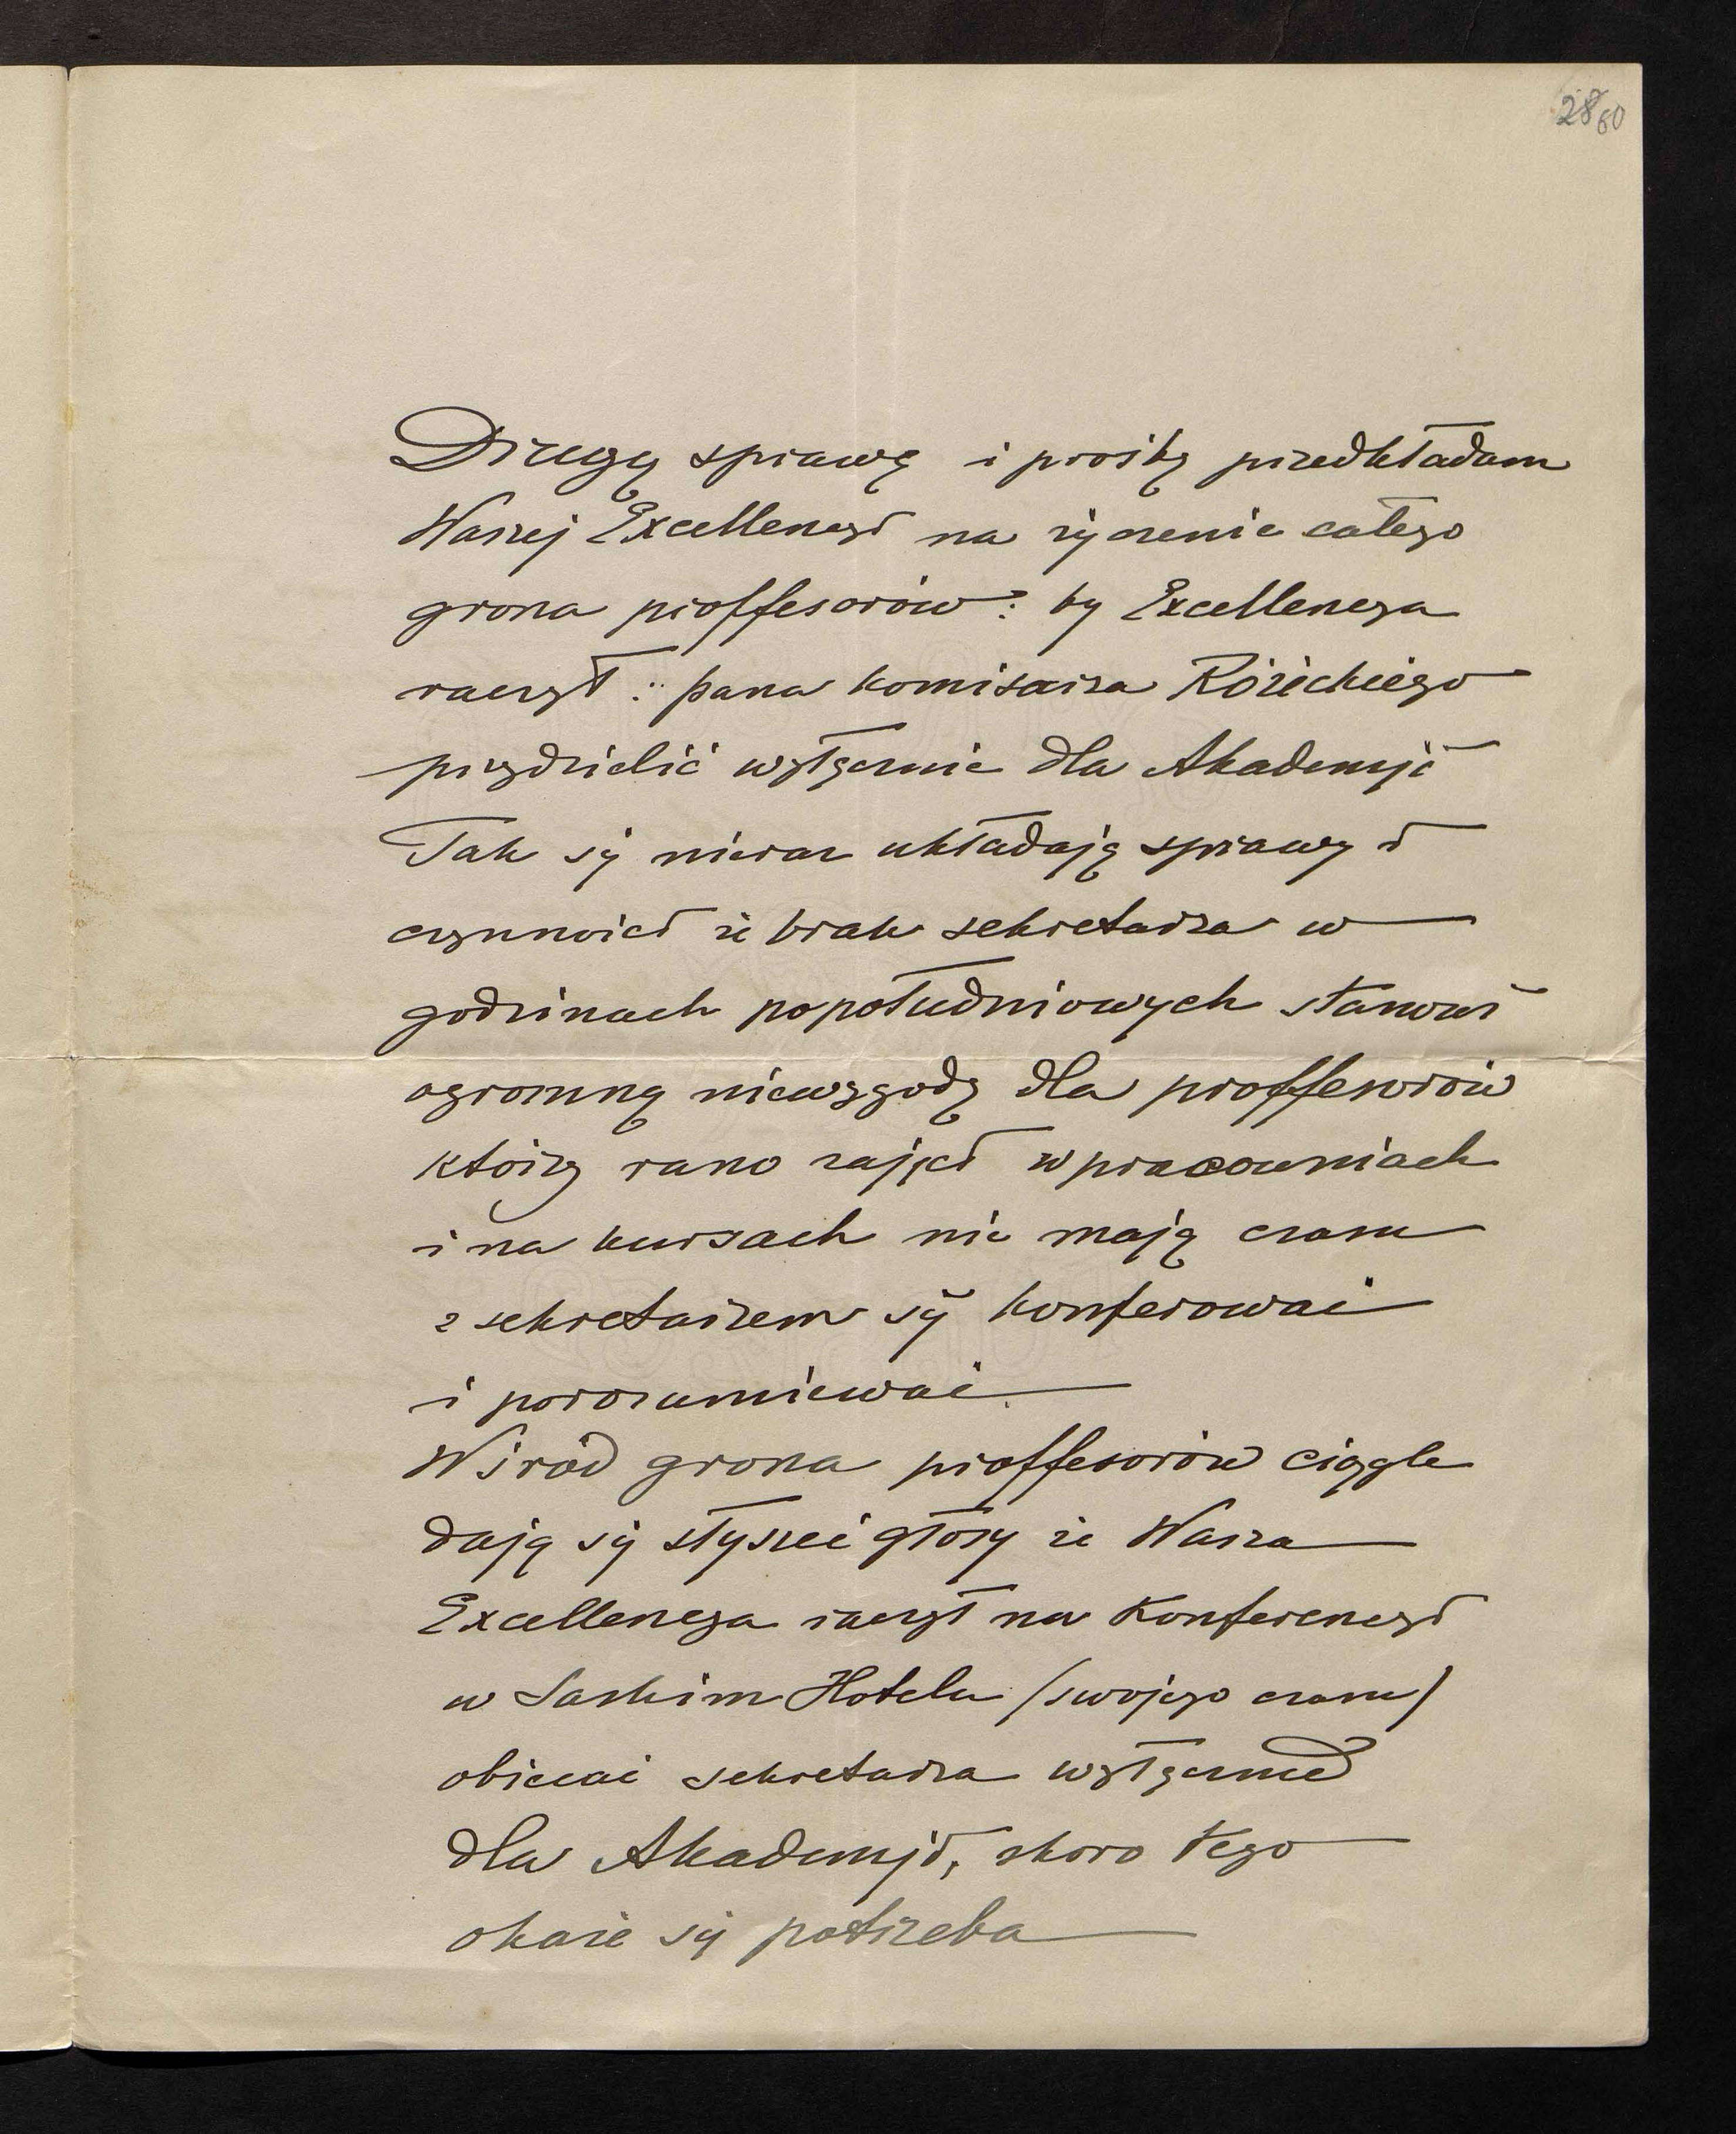 28 60
Drugą sprawę i prośbę przedkładam
Waszej Excellencyi na życzenie całego
grona proffesorów: by Excellencya
raczył: pana komisarza Różickiego
przydzielić wyłącznie dla Akademji
Tak się nieraz układają sprawy i
czynności że brak sekretarza w
godzinach popołudniowych stanowi
ogromną niewygodę dla proffesorów
którzy rano zajęci w pracowniach
i na kursach nie mają czasu
z sekretarzem się konferować
i porozumiewać
Wśród grona proffesorów ciągle
dają się słyszeć głosy że Wasza
Excellencya raczył na Konferencyi
w Saskim Hotelu (swojego czasu)
obiecać sekretarza wyłącznie
dla Akademji, skoro tego
okaże się potrzeba